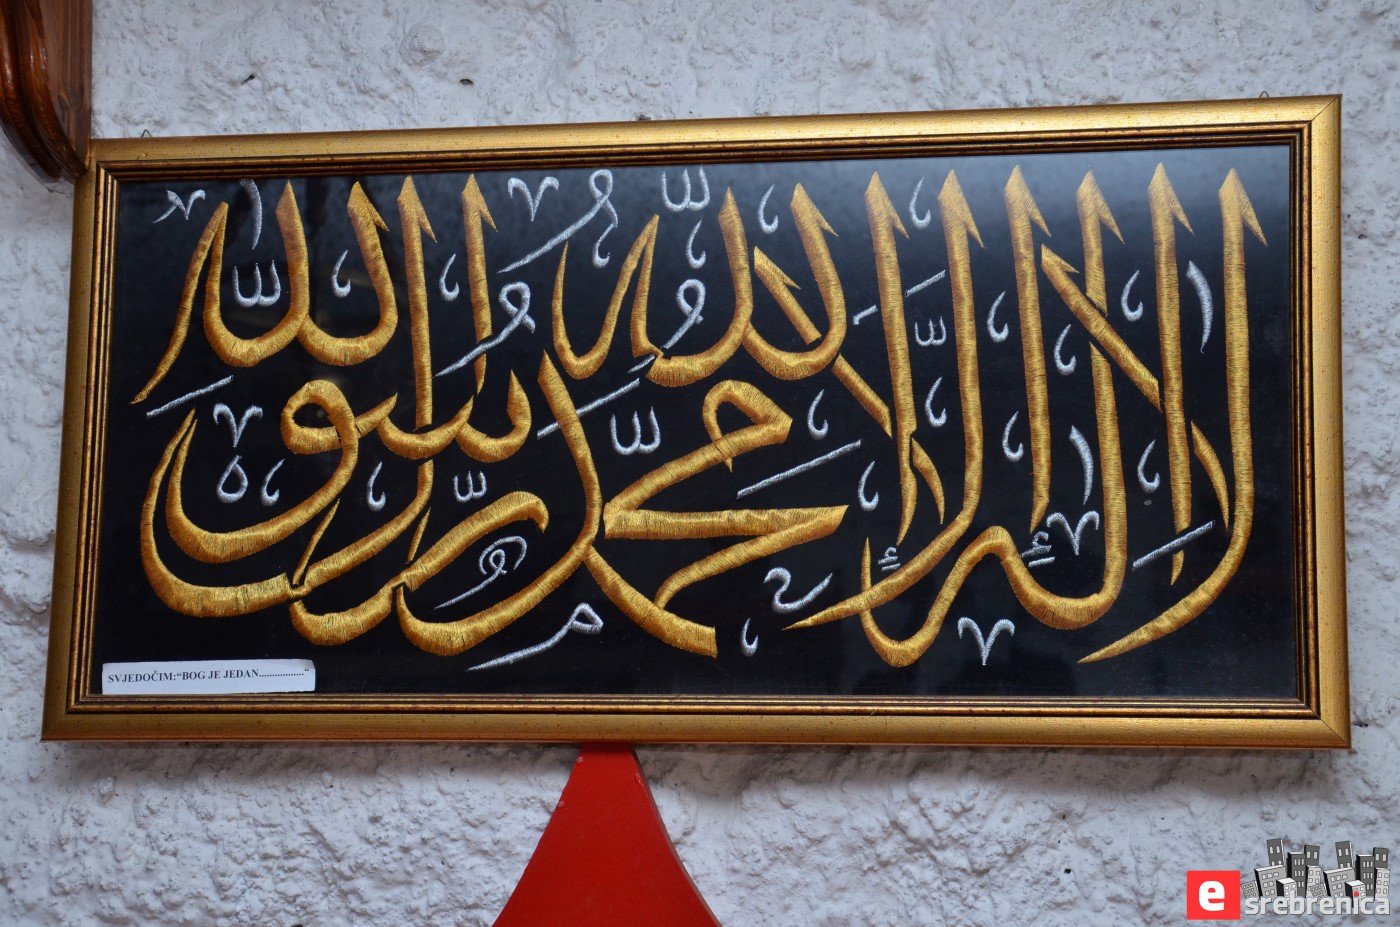 لا إله إلا الله محمد رسول الله
SVJEDOČIM:“BOG JE JEDAN.................“
e srebrenica